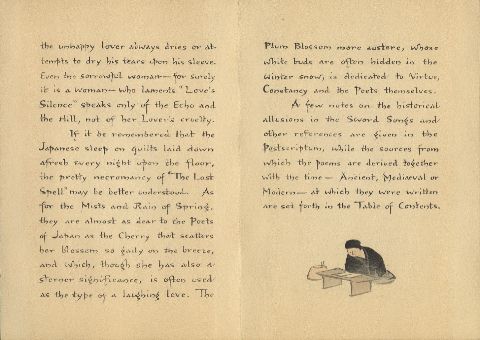 the unhappy lover always dries or at-
tempts to dry his tears upon his sleeve.
Even the sorrowful woman—for surely
it is a woman—who laments "Love's
Silence" speaks only of the Echo and
the Hill, not of her Lover's cruelty.
If it be remembered that the
Japanese sleep on quilts laid down
afresh every night upon the floor,
the pretty necromancy of "The Lost
Spell" may be better understood. As
for the Mists and Rain of Spring,
they are almost as dear to the Poets
of Japan as the Cherry that scatters
her blossom so gaily on the breeze,
and which, though she has also a
sterner significance, is often used
as the type of a laughing love. The
Plum Blossom more austere, whose
white buds are often hidden in the
winter snow, is dedicated to Virtue,
Constancy and the Poets themselves.
A few notes on the historical
allusions in the Sword Songs and
other references are given in the
Postscriptum, while the sources from
which the poems are derived together
with the time — Ancient, Mediæval or
Modern — at which they were written
are set forth in the Table of Contents.